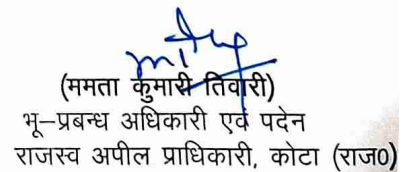 (ममता कुमारी तिवारी)
भू-प्रबन्ध अधिकारी एवं पदेन
राजस्व अपील प्राधिकारी, कोटा (राज0)